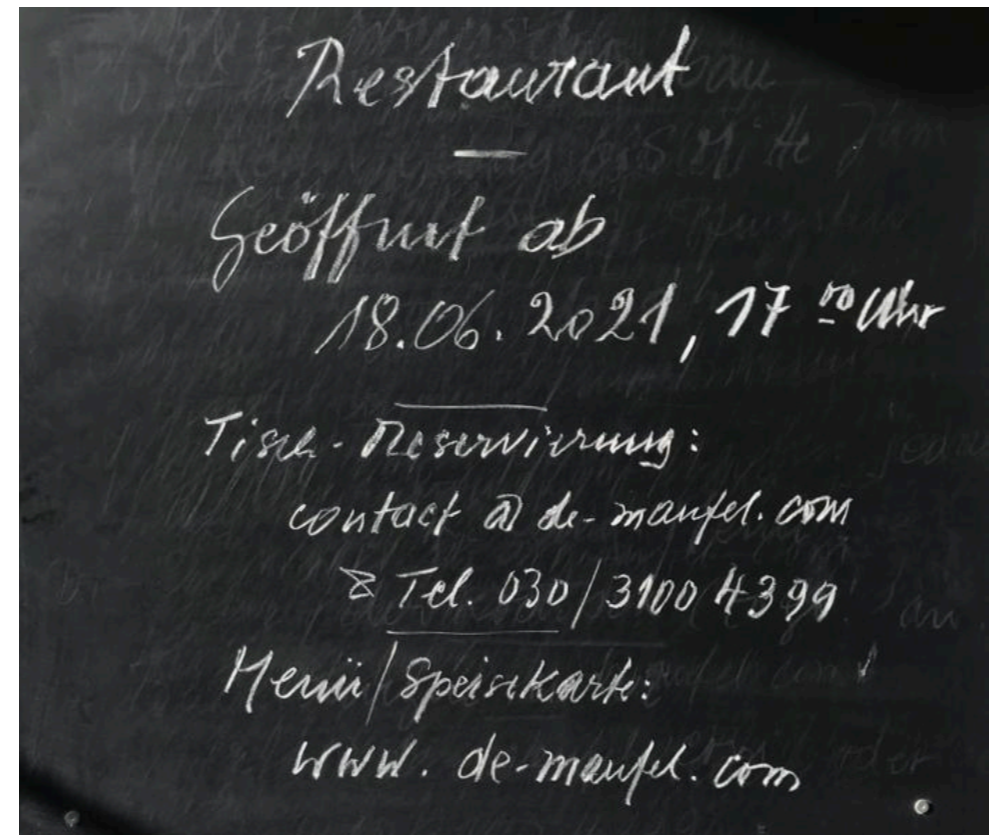 Restaurant
Geöffnet ab
18.06.2021, 17 00 Uhr
Tisch-Reservierung:
contact@de-maufel.com
& Tel. 030/3100 4399
Menü/Speisekarte:
www.de-maufel.com